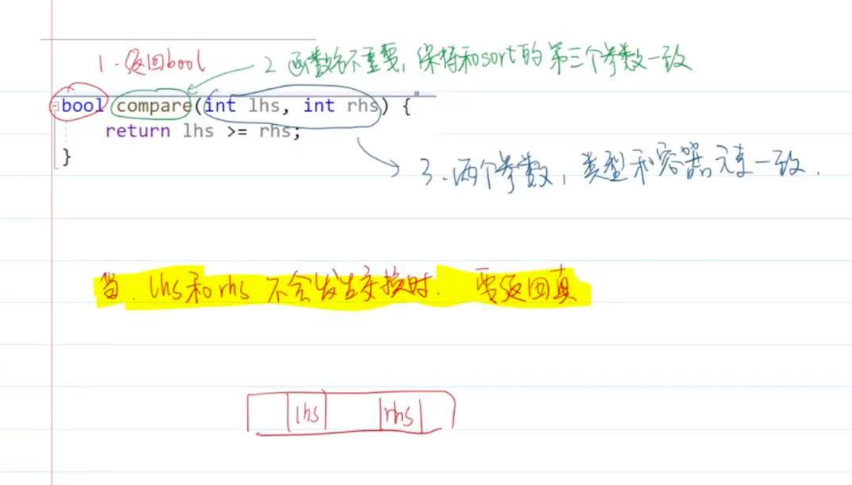 1. 返回bool
2 函数名不重要, 保持和sort的第三个参数一致
bool compare(int lhs, int rhs) {
return lhs >= rhs;
}
3. 两个参数, 类型和容器元素一致.
当. lhs和rhs 不会发生交换时. 要返回真
lhs rhs